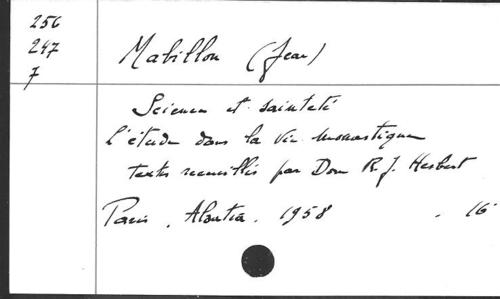 256
247
7
Mabillon (Jean)
Science et sainteté
l'étude dans la vie monastique
textes recueillis par Dom R.J. Hesbert
Paris, Alsatia, 1958. 16°